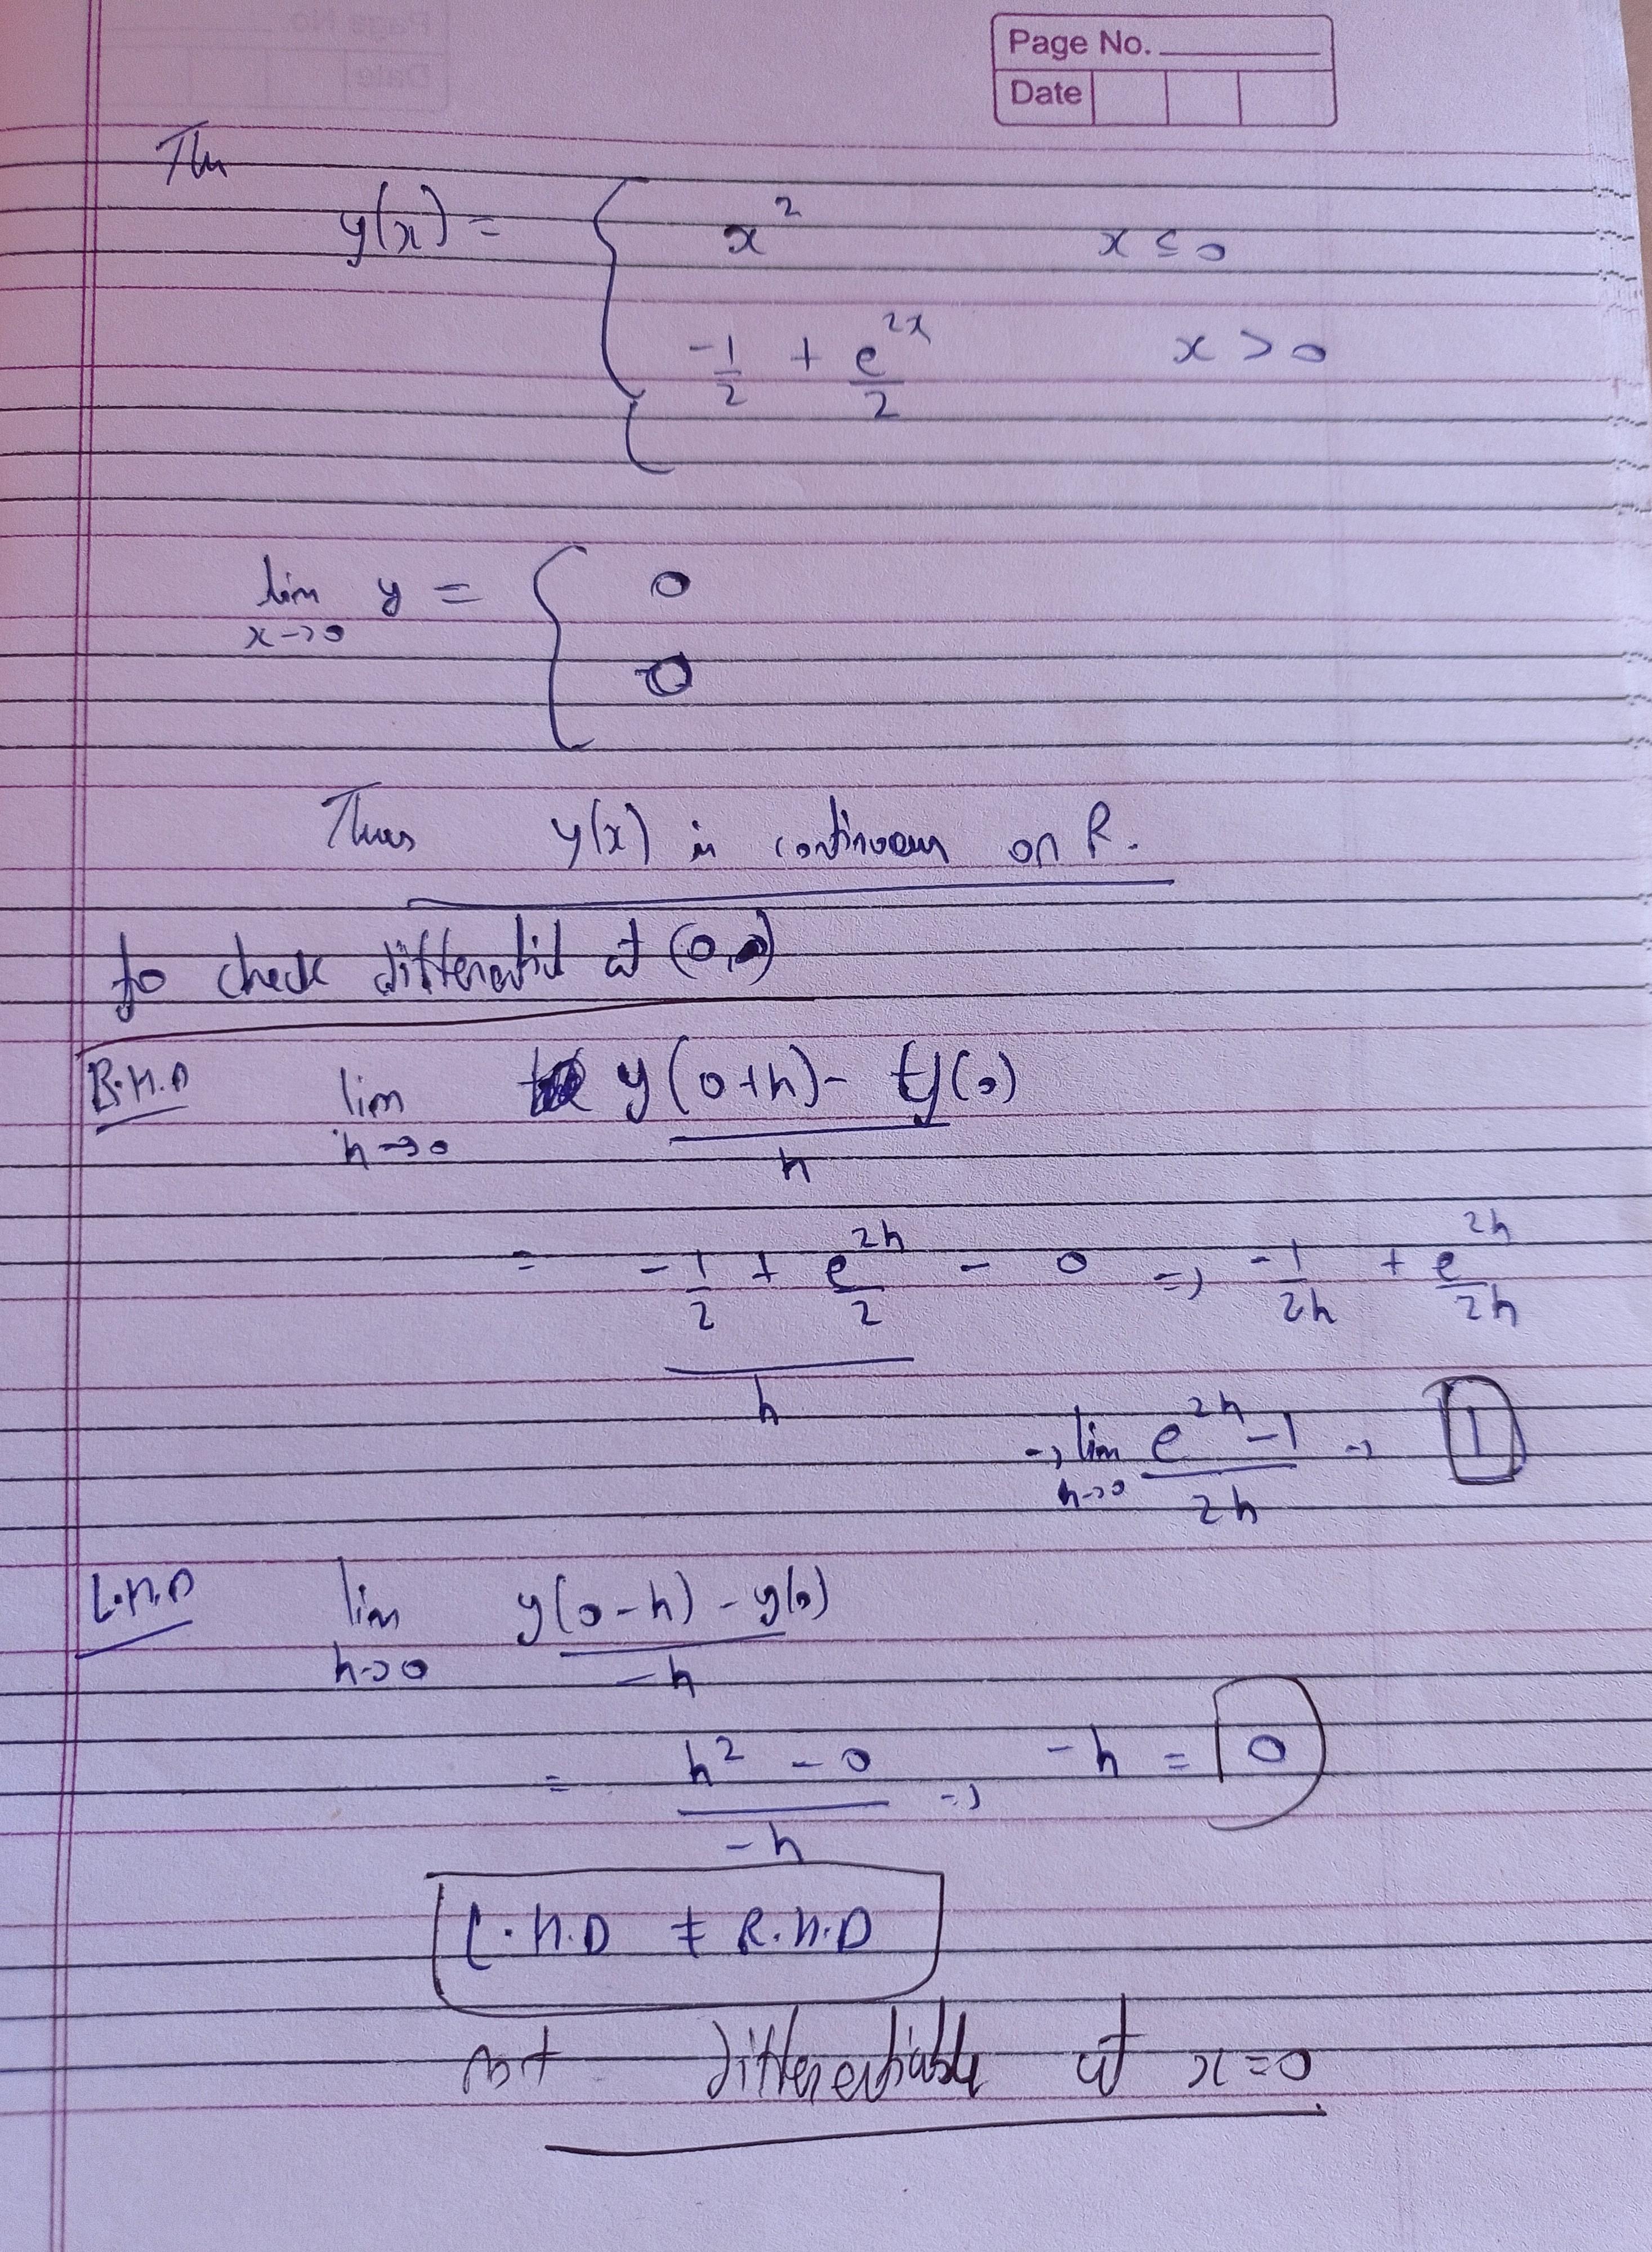 Page No.
Date
Thu
y(x) = { x² x ≤ 0
-1/2 + e^{2x}/2 x > 0
lim x→0 y = { 0
0
Thus y(x) is continuous on R.
to check differential at (0,0)
R.H.D lim h→0 y(0+h) - y(0) / h
= -1/2 + e^{2h}/2 - 0 / h => -1/2h + e^{2h}/2h
→ lim h→0 e^{2h} - 1 / 2h → 1
L.H.D lim h→0 y(0-h) - y(0) / -h
= h² - 0 / -h → -h = 0
L.H.D ≠ R.H.D
not differentiable at x=0